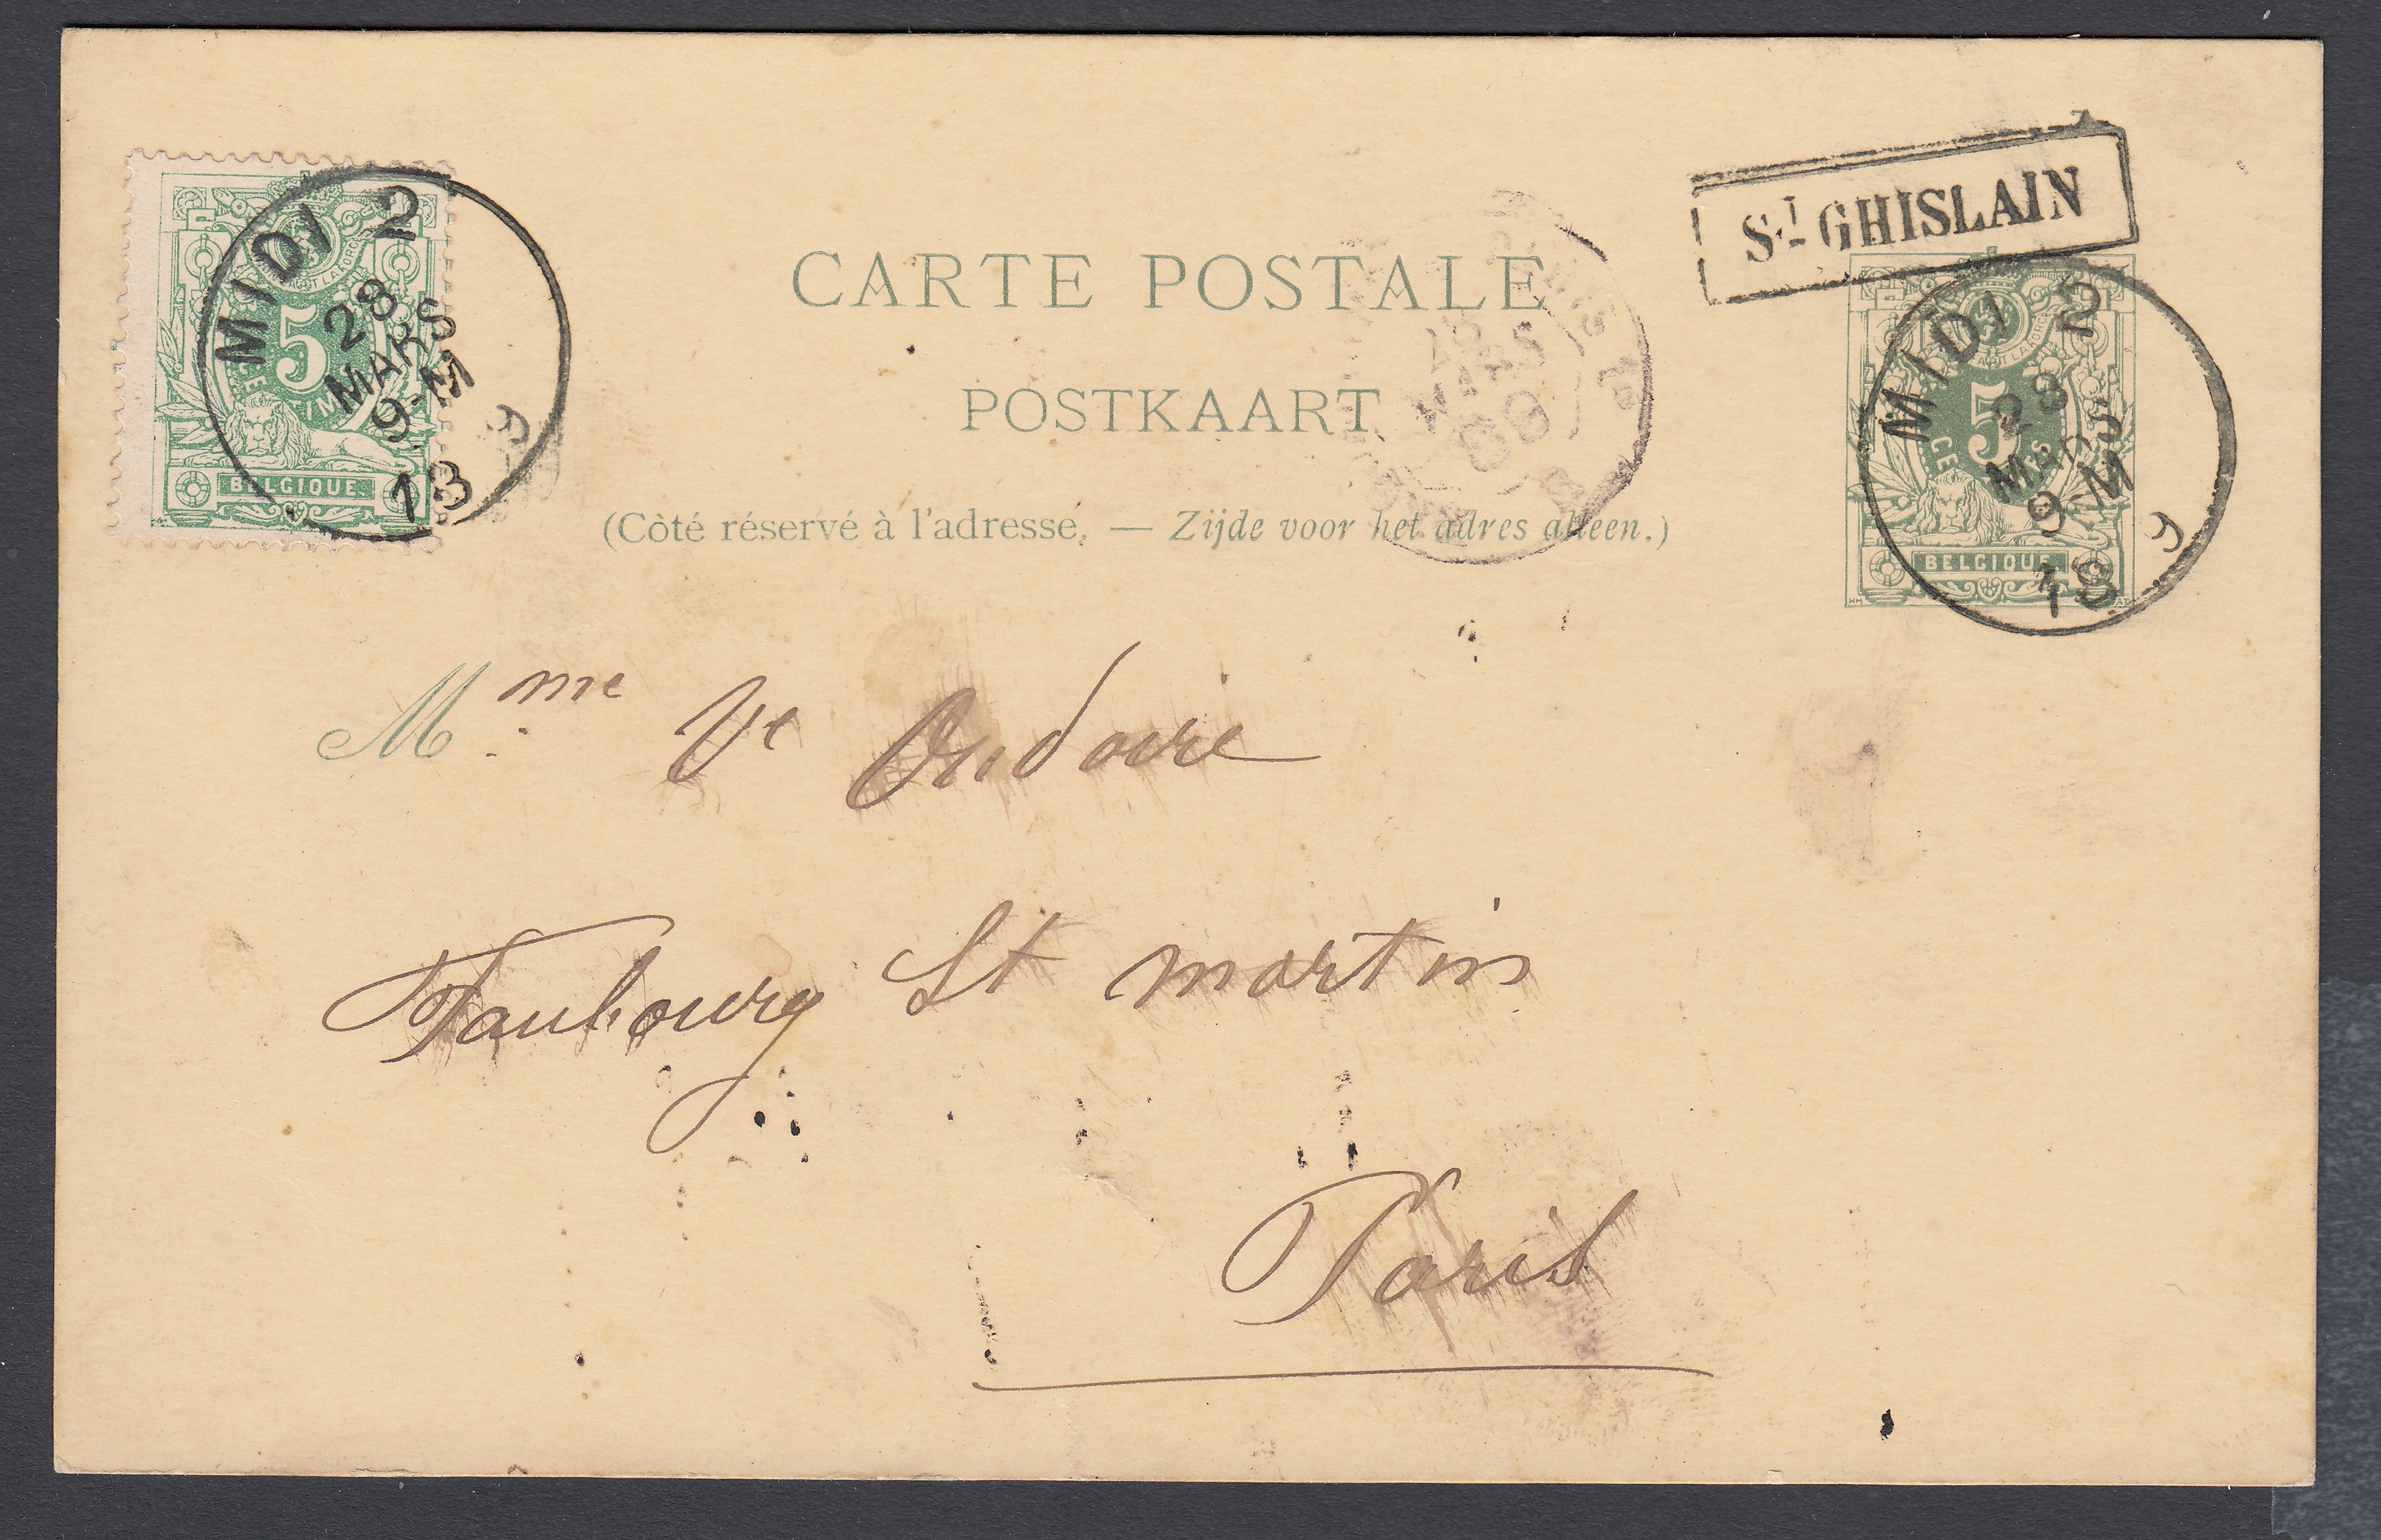 St GHISLAIN
MIDI 2
28
MARS
9-M
18 9
5
CENTIMES
BELGIQUE
MIDI 2
28
MARS
9-M
18 9
5
CENTIMES
BELGIQUE
CARTE POSTALE
POSTKAART
(Côté réservé à l'adresse. — Zijde voor het adres alleen.)
Mme Ve
Faubourg St martin
Paris